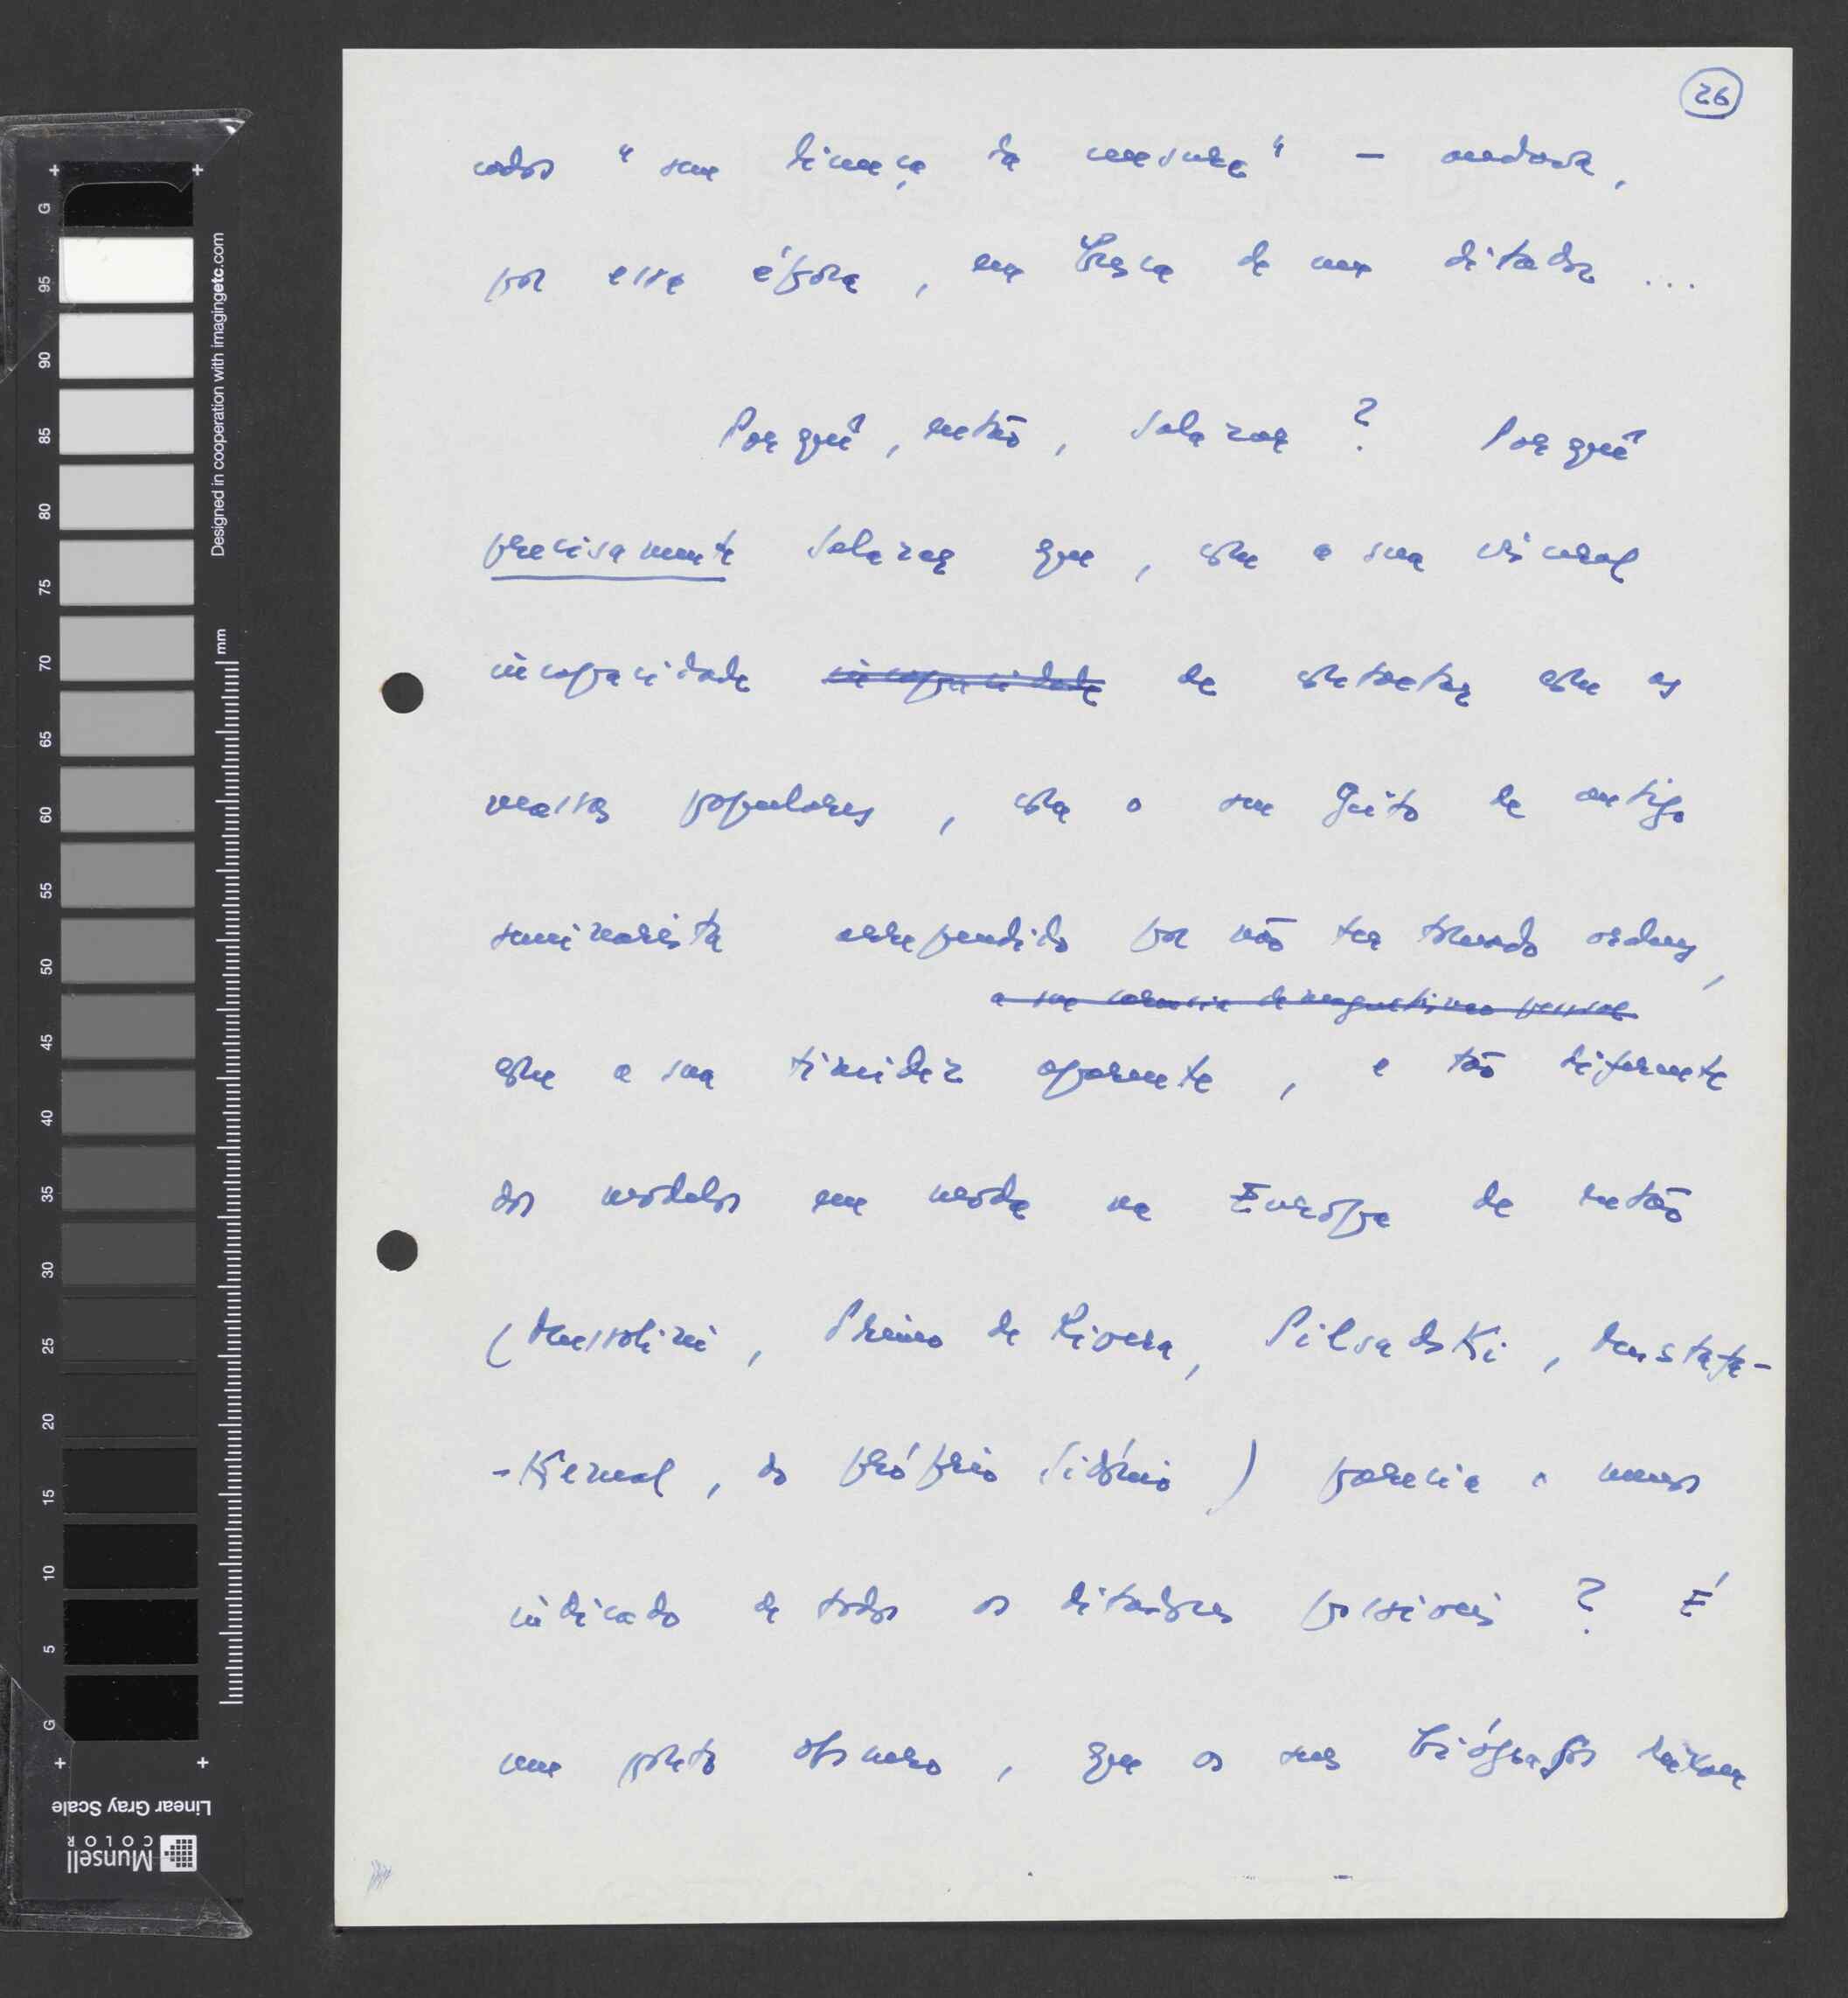 26
cados "sem licença da censura" – andava,
por essa época, em busca de um ditador...
Porquê, então, Salazar? Porquê
precisamente Salazar que, com a sua visceral
incapacidade incapacidade de contactar com as
massas populares, com o seu jeito de antigo
seminarista arrependido por não ter tomado ordens,
a sua carência de magnetismo pessoal
com a sua timidez aparente, e tão diferente
dos modelos em moda na Europa de então
(Mussolini, Primo de Rivera, Pilsudski, Mustafa-
-Kemal, do próprio Sidónio) parecia o menos
indicado de todos os ditadores possíveis? É
um ponto obscuro, que os seus biógrafos deixam
G 95 90 85 80 75 70 65 60 55 50 45 40 35 30 25 20 15 10 5 G
Designed in cooperation with imagingetc.com
mm
Linear Gray Scale
Munsell
COLOR